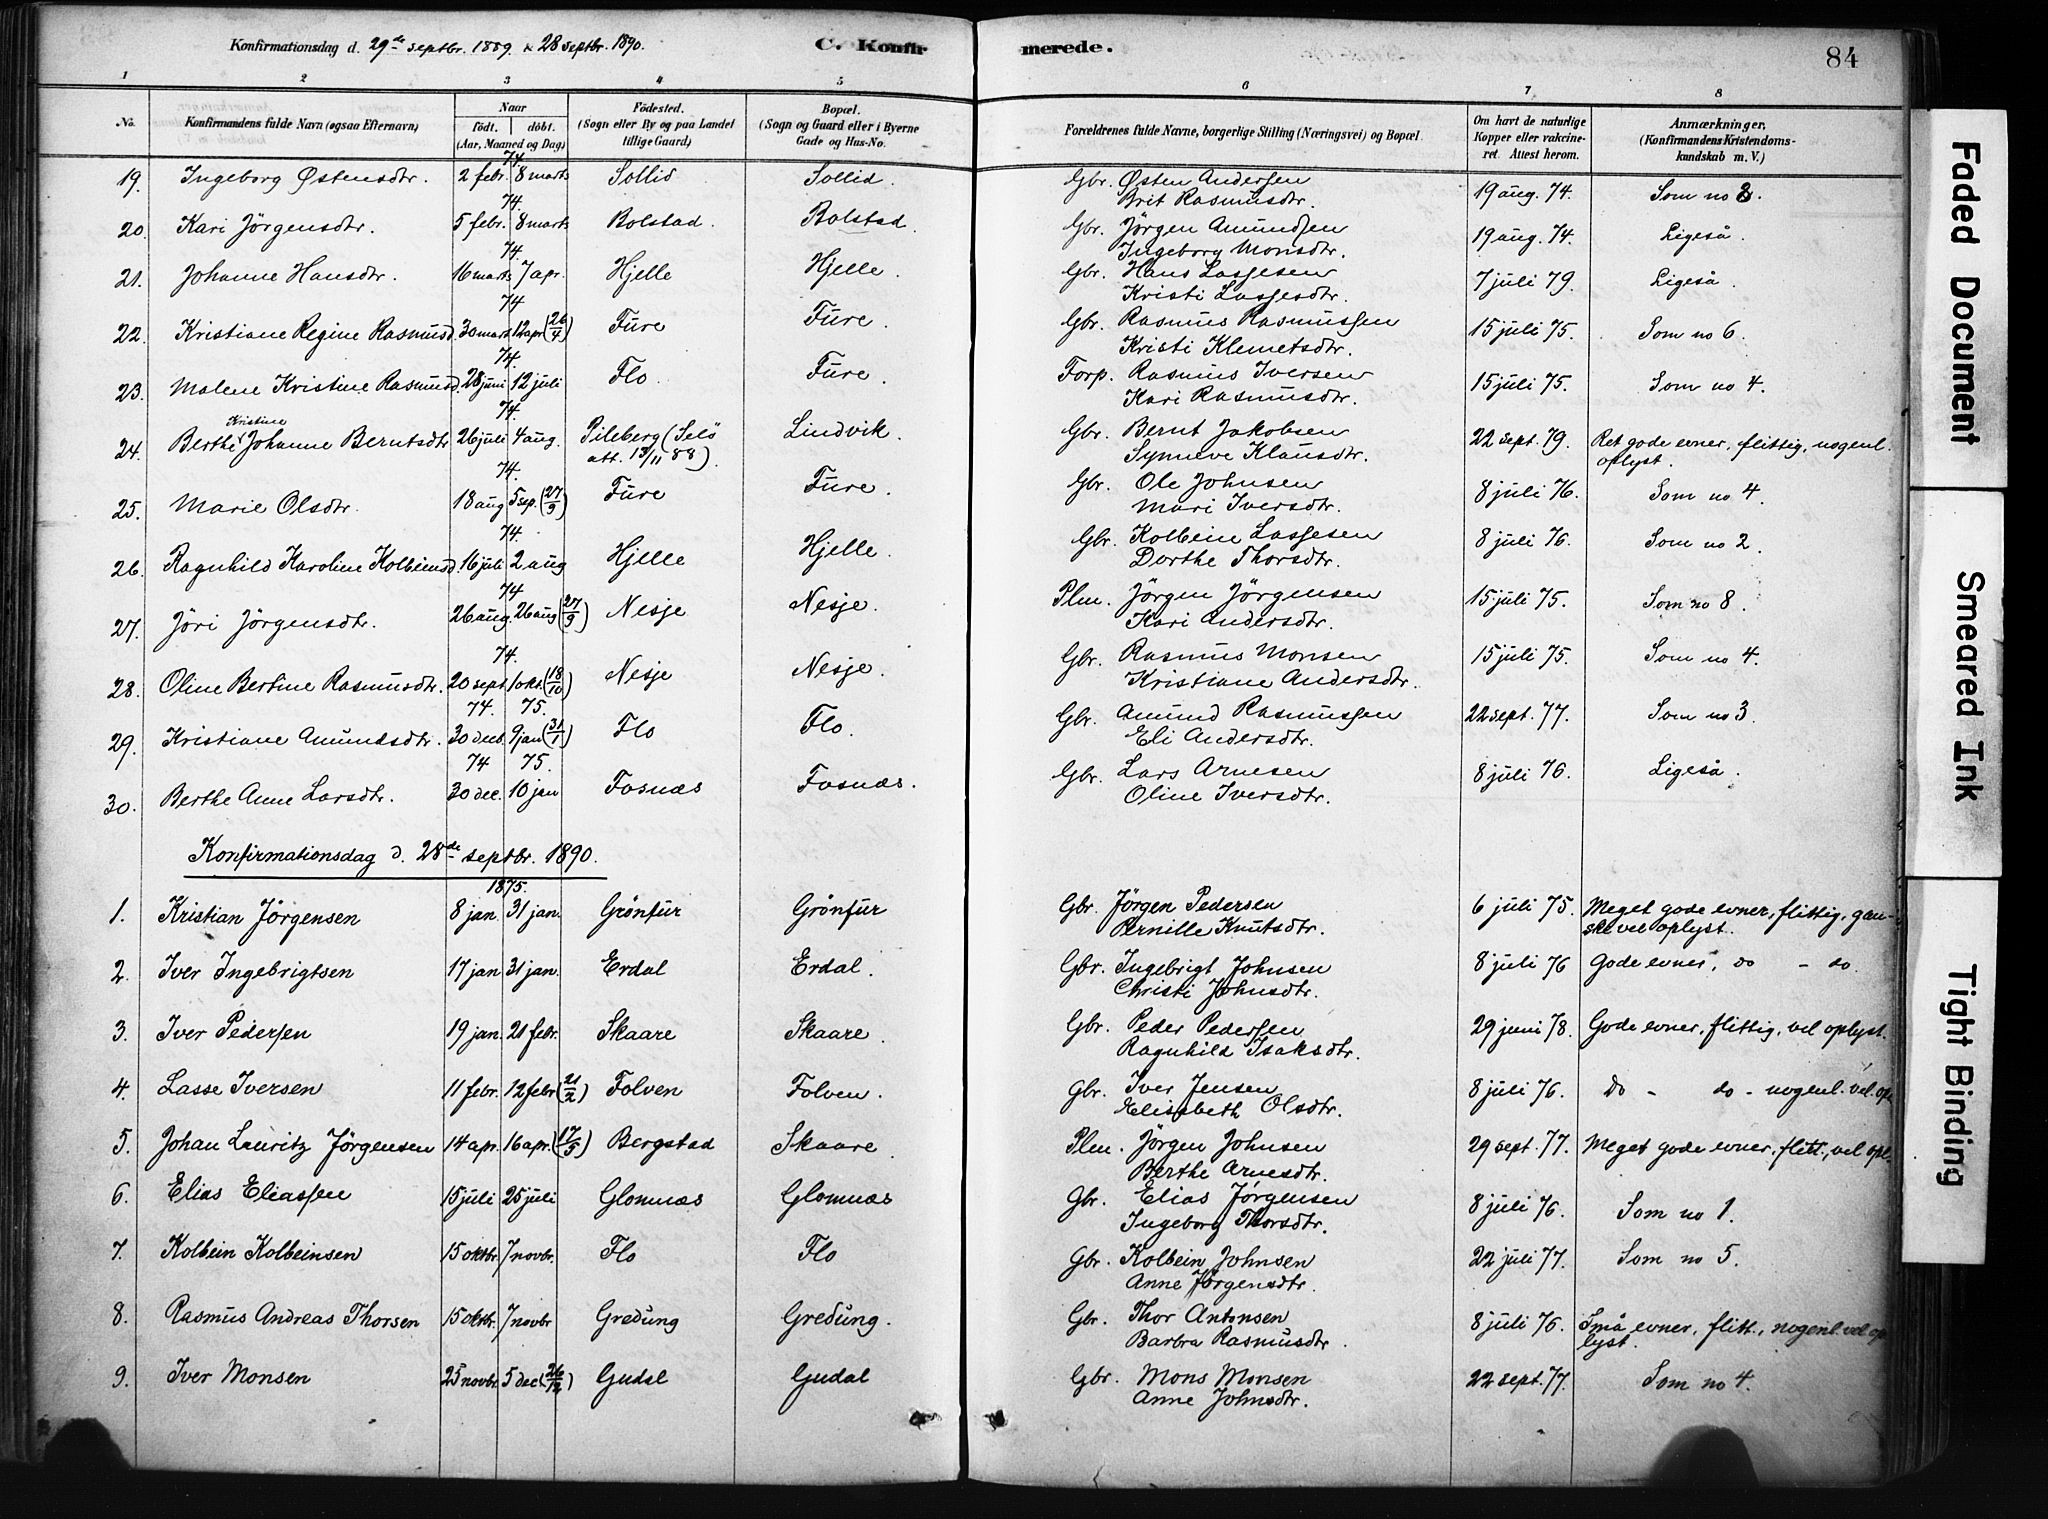 Konfirmationsdag d. 29de septbr. 1889. & 28 septbr. 1890. C. Konfirmerede. 84
1 2 3 4 5 6 7 8
No. Konfirmandens fulde Navn (ogsaa Efternavn) Naar födt. döbt. (Aar, Maaned og Dag) Födested. (Sogn eller By og paa Landet tillige Gaard) Bopæl. (Sogn og Gaard eller i Byerne Gade og Hus-No. Forældrenes fulde Navne, borgerlige Stilling (Næringsvei) og Bopæl. Om havt de naturlige Kopper eller vakcineret. Attest herom. Anmærkninger, (Konfirmandens Kristendomskundskab m. V.)
74.
19. Ingeborg Østensdtr. 2 febr. 8 marts Sollid Sollid. Gbr. Østen Andersen 19 aug. 74. Som no 3.
Brit Rasmusdtr.
74.
20. Kari Jörgensdtr. 5 febr. 8 marts Bolstad. Bolstad. Gbr. Jörgen Amundsen 19 aug. 74. Ligeså.
Ingeborg Monsdtr.
74.
21. Johanne Hansdtr. 16 marts 7 apr. Hjelle Hjelle. Gbr. Hans Lassesen 7 juli 79. Ligeså.
Kristi Lassesdtr.
74
22. Kristiane Regine Rasmusd. 30 marts 12 apr (26/4) Fure Fure. Gbr. Rasmus Rasmussen 15 juli 75. Som no 6.
Kristi Klemetsdtr.
74.
23. Malene Kristine Rasmusd. 28 juni 12 juli Flo. Fure. Forp. Rasmus Iversen 15 juli 75. Som no 4.
Kari Rasmusdtr.
74.
Kristine
24. Berthe Johanne Berntsdtr. 26 juli 4 aug. Pileberg (Selö Lindvik. Gbr. Bernt Jakobsen 22 sept. 79. Ret gode evner, flittig, nogenl.
att. 13/11 88). Synneve Klausdtr. oplyst.
74.
25. Marie Olsdtr. 18 aug 5 sep. (27/9) Fure Fure. Gbr. Ole Johnsen 8 juli 76. Som no 4.
Mari Iversdtr.
74.
26. Ragnhild Karoline Kolbeinsd. 16 juli 2 aug Hjelle Hjelle. Gbr. Kolbein Lassesen 8 juli 76. Som no 2.
Dorthe Thorsdtr.
74
27. Jöri Jörgensdtr. 26 aug. 26 aug (27/9) Nesje Nesje. Plm. Jörgen Jörgensen 15 juli 75. Som no 8.
Kari Andersdtr.
74.
28. Oline Bertine Rasmusdtr. 20 sept. 1 okt. (18/10) Nesje Nesje. Gbr. Rasmus Monsen 15 juli 75. Som no 4.
Kristiane Andersdtr.
74. 75.
29. Kristiane Amundsdtr. 30 dec. 9 jan (31/1) Flo Flo. Gbr. Amund Rasmussen 22 sept. 77. Som no 3.
Eli Andersdtr.
74 75.
30. Berthe Anne Larsdtr. 30 dec. 10 jan Fosnæs Fosnæs. Gbr. Lars Arnesen 8 juli 76. Ligeså.
Oline Iversdtr.
Konfirmationsdag d. 28de septbr. 1890.
1875.
1. Kristian Jörgensen 8 jan. 31 jan. Grönfur Grönfur Gbr. Jörgen Pedersen 6 juli 75. Meget gode evner, flittig, gan-
Pernille Knutsdtr. ske vel oplyst.
2. Iver Ingebrigtsen 17 jan 31 jan. Erdal Erdal. Gbr. Ingebrigt Johnsen 8 juli 76 Gode evner, do - do.
Christi Johnsdtr.
3. Iver Pedersen 19 jan. 21 febr. Skaare Skaare. Gbr. Peder Pedersen 29 juni 78. Gode evner, flittig, vel oplyst.
Ragnhild Isaksdtr.
4. Lasse Iversen 11 febr. 12 febr (21/2) Folven Folven. Gbr. Iver Jensen 8 juli 76. Do - do - nogenl. vel. op.
Elisabeth Olsdtr.
5. Johan Lauritz Jörgensen 14 apr. 16 apr. (17/5) Bergstad Skaare. Plm. Jörgen Johnsen 29 sept. 77. Meget gode evner, flitt., vel opl.
Berthe Arnesdtr.
6. Elias Eliassen 15 juli 25 juli Glomnæs Glomnæs Gbr. Elias Jörgensen 8 juli 76. Som no 1.
Ingeborg Thorsdtr.
7. Kolbein Kolbeinsen 15 oktbr. 7 novbr. Flo Flo Gbr. Kolbein Johnsen 22 juli 77. Som no 5.
Anne Jörgensdtr.
8. Rasmus Andreas Thorsen 15 oktbr. 7 novbr Gredung Gredung. Gbr. Thor Antonsen 8 juli 76. Små evner, flitt., nogenl. vel op
Barbra Rasmusdtr. lyst.
9. Iver Monsen 25 novbr. 5 dec (26/12) Gudal Gudal Gbr. Mons Monsen 22 sept. 77. Som no 4.
Anne Johnsdtr.
Faded Document
Smeared Ink
Tight Binding